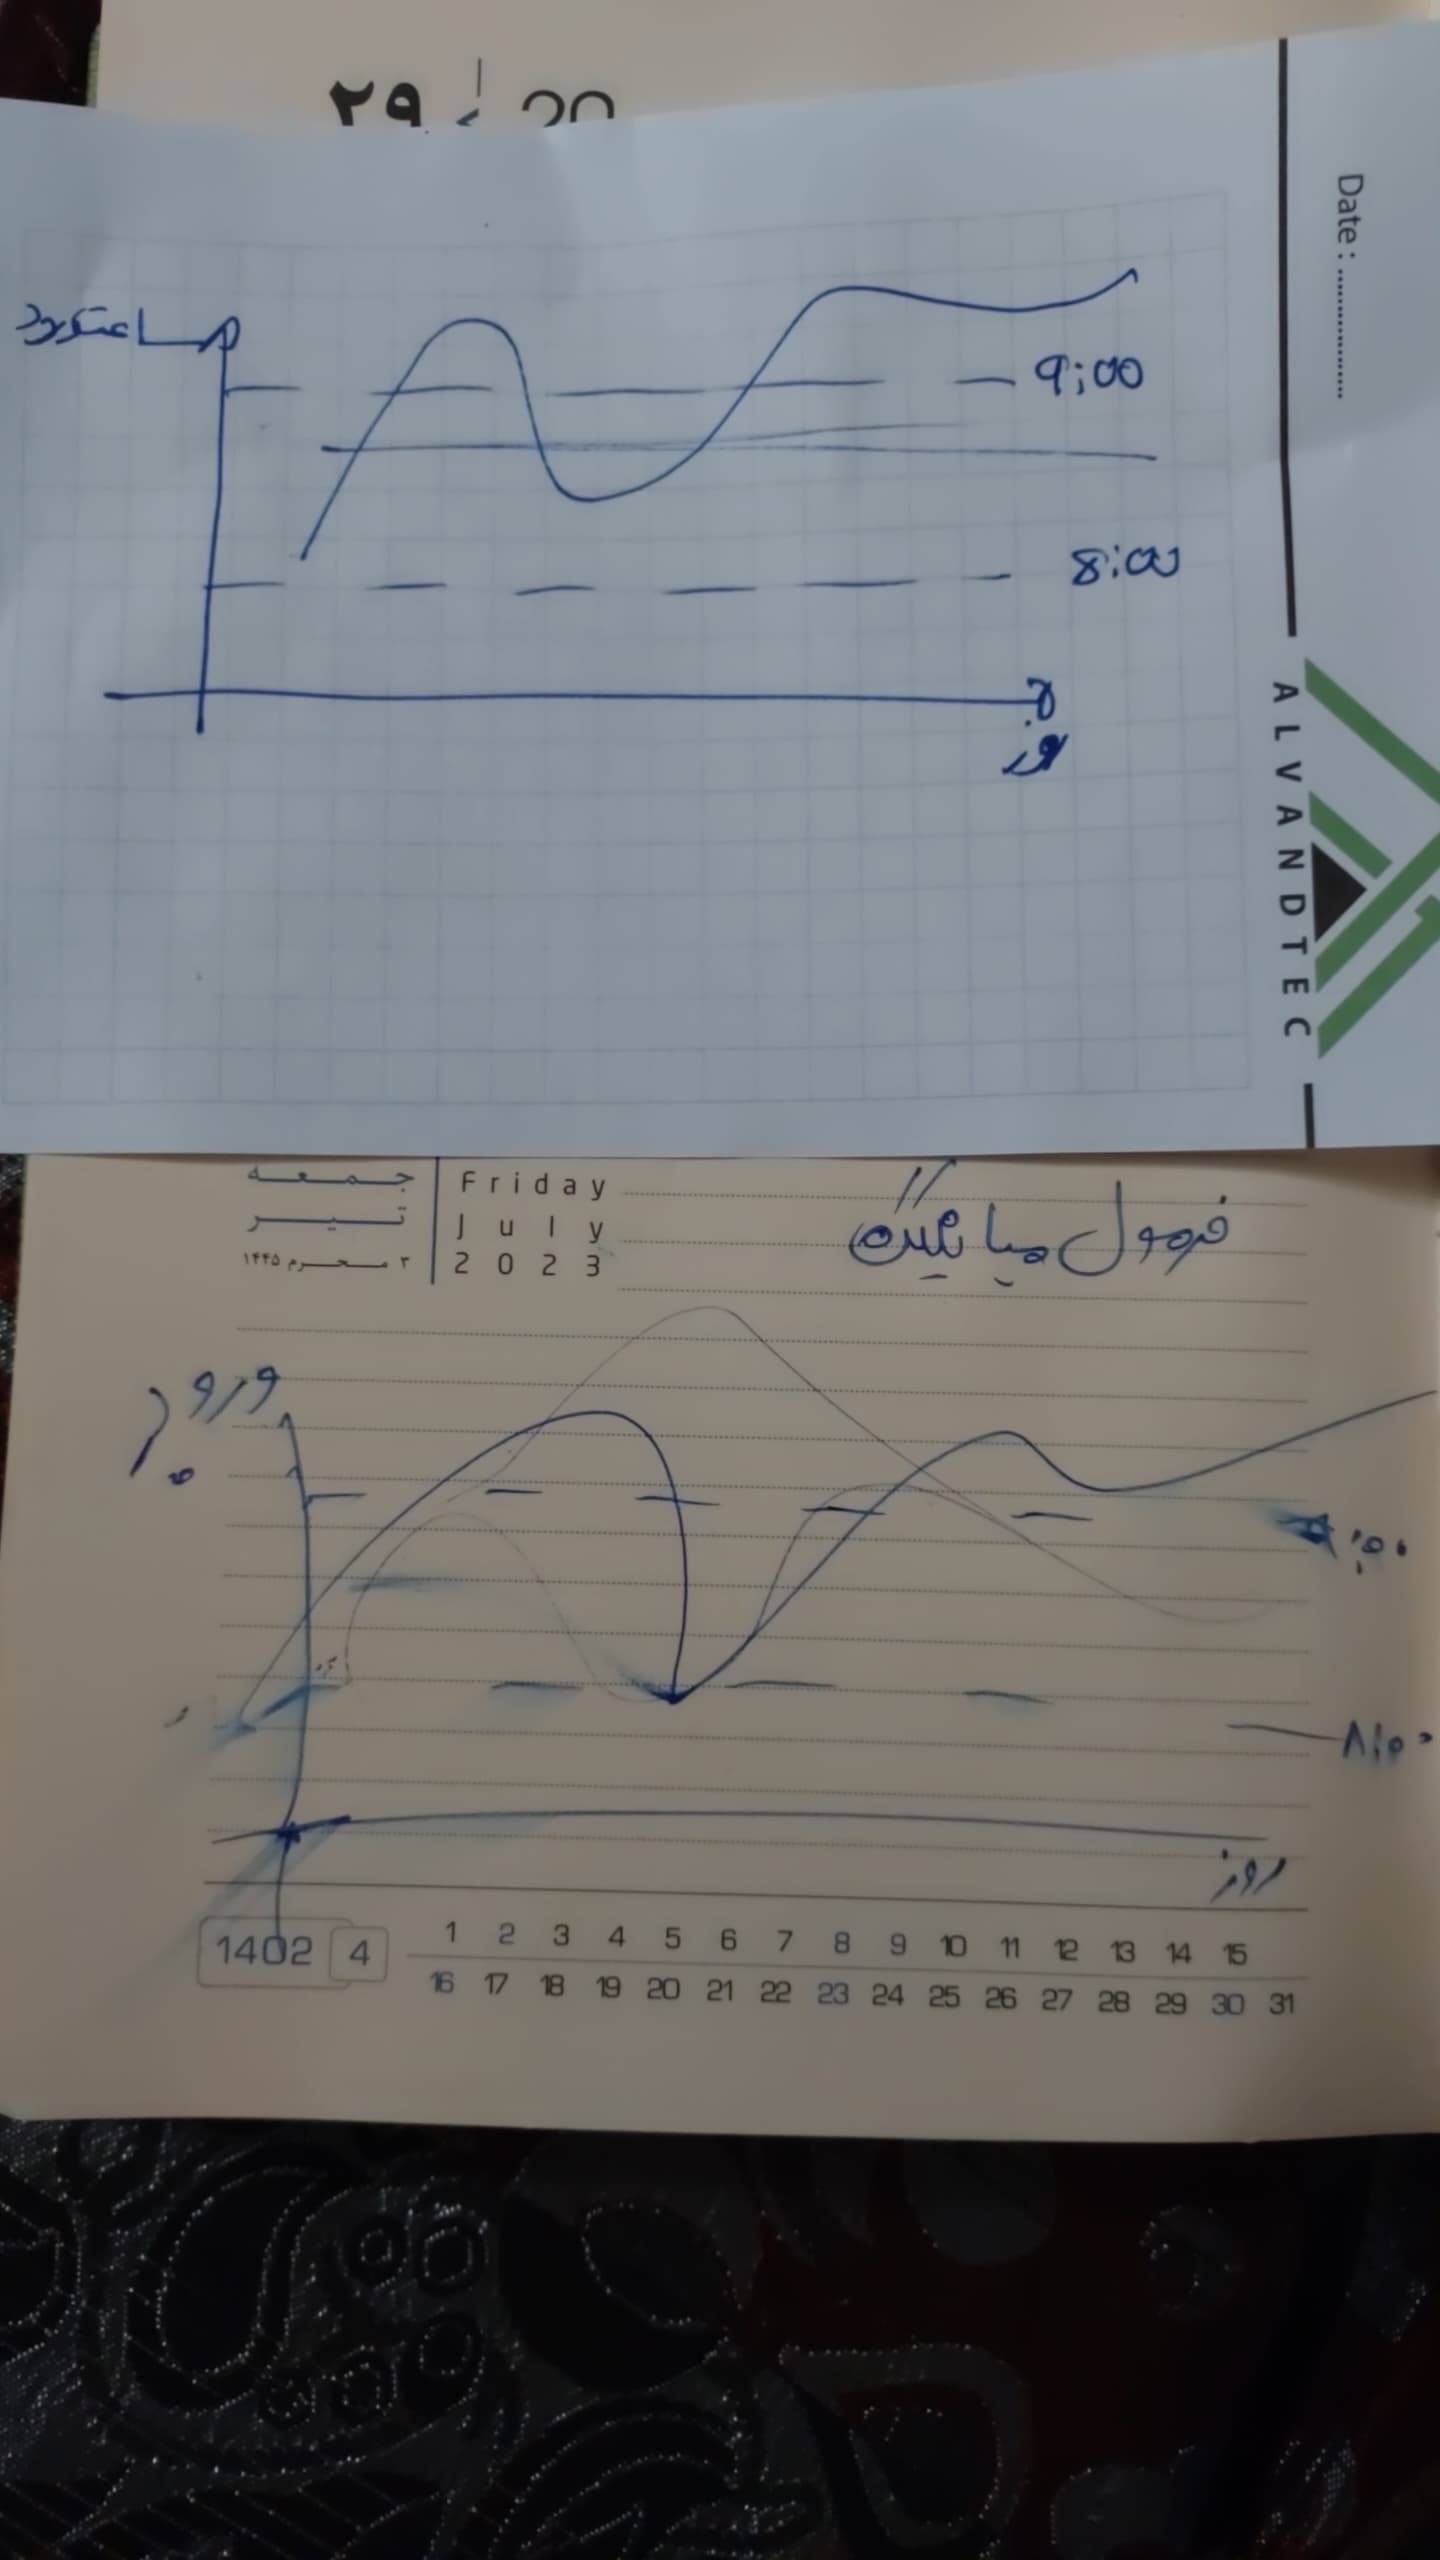 ۲۹
Date : ..................
ساعت ورود
9:00
8:00
روز
ALVANDTEC
جمعه
Friday
تیر
July
۳ محرم ۱۴۴۵
2023
فرمول میانگین
ورود
۹:۰۰
۸:۰۰
روز
1402 4
1 2 3 4 5 6 7 8 9 10 11 12 13 14 15
16 17 18 19 20 21 22 23 24 25 26 27 28 29 30 31